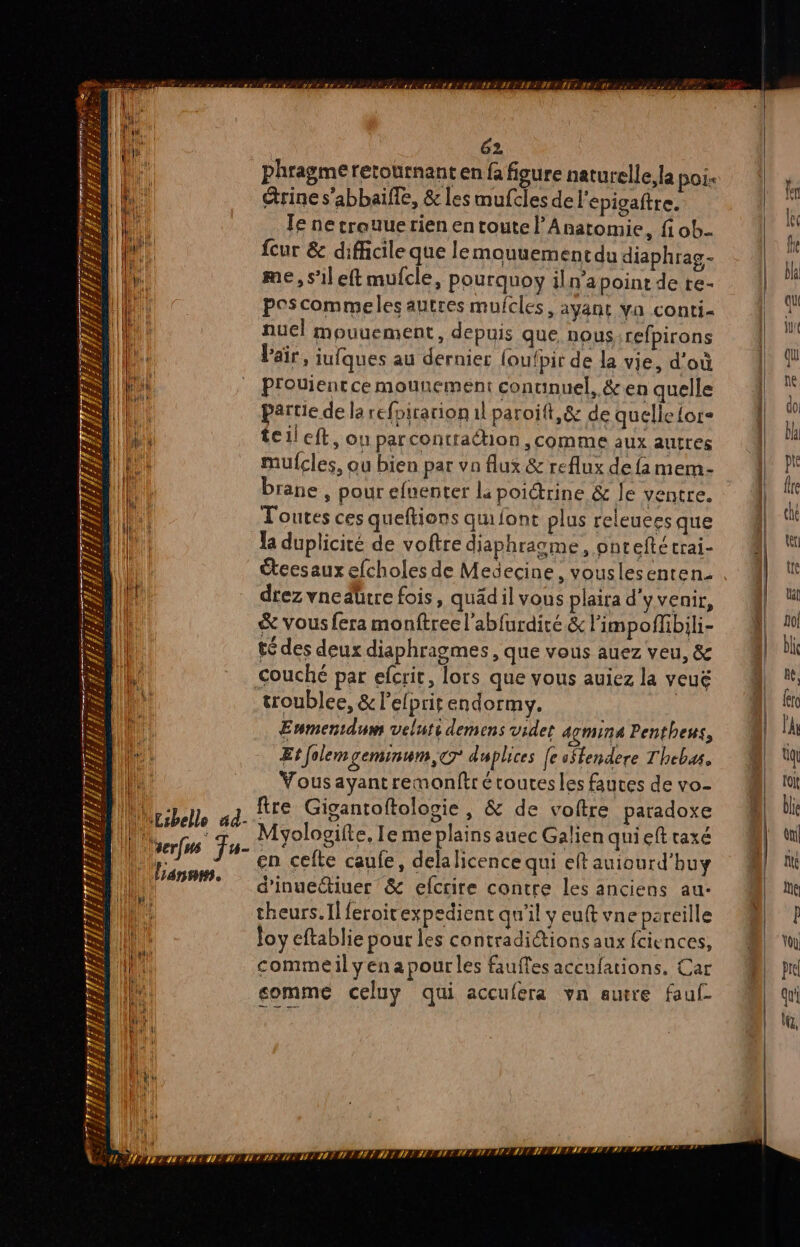 62
phragme retournant en ſa figure naturelle, la poi-
ctrine s'abbaiſſe, & les muſcles de l'epigaſtre.
Ie ne trouue rien en toute l'Anatomie, ſi ob-
ſcur & difficile que le mouuement du diaphrag-
me, s'il eſt muſcle, pourquoy il n'a point de re-
pos comme les autres muſcles, ayant vn conti-
nuel mouuement, depuis que nous reſpirons
l'air, iuſques au dernier ſouſpir de la vie, d'où
prouient ce mouuement continuel, & en quelle
partie de la reſpiration il paroiſt, & de quelle ſor-
te il eſt, ou par contraction, comme aux autres
muſcles, ou bien par vn flux & reflux de ſa mem-
brane, pour eſuenter la poictrine & le ventre.
Toutes ces queſtions qui ſont plus releuees que
la duplicité de voſtre diaphragme, ont eſté trai-
ctees aux eſcholes de Medecine, vous les enten-
drez vne autre fois, quãd il vous plaira d'y venir,
& vous ſera monſtree l'abſurdité & l'impoſſibili-
té des deux diaphragmes, que vous auez veu, &
couché par eſcrit, lors que vous auiez la veuë
troublee, & l'eſprit endormy.
Eumenidum veluti demens videt agmina Pentheus,
Et ſolem geminum, & duplices ſe oſtendere Thebas.
Vous ayant remonſtré toutes les fautes de vo-
ſtre Gigantoſtologie, & de voſtre paradoxe
Myologiſte, Ie me plains auec Galien qui eſt taxé
en ceſte cauſe, de la licence qui eſt auiourd'huy
d'inuectiuer & eſcrire contre les anciens au-
theurs. Il ſeroit expedient qu'il y euſt vne pareille
loy eſtablie pour les contradictions aux ſciences,
comme il y en a pour les fauſſes accuſations. Car
comme celuy qui accuſera vn autre fauſ-
Libello ad-
uerſus Iu-
lianum.